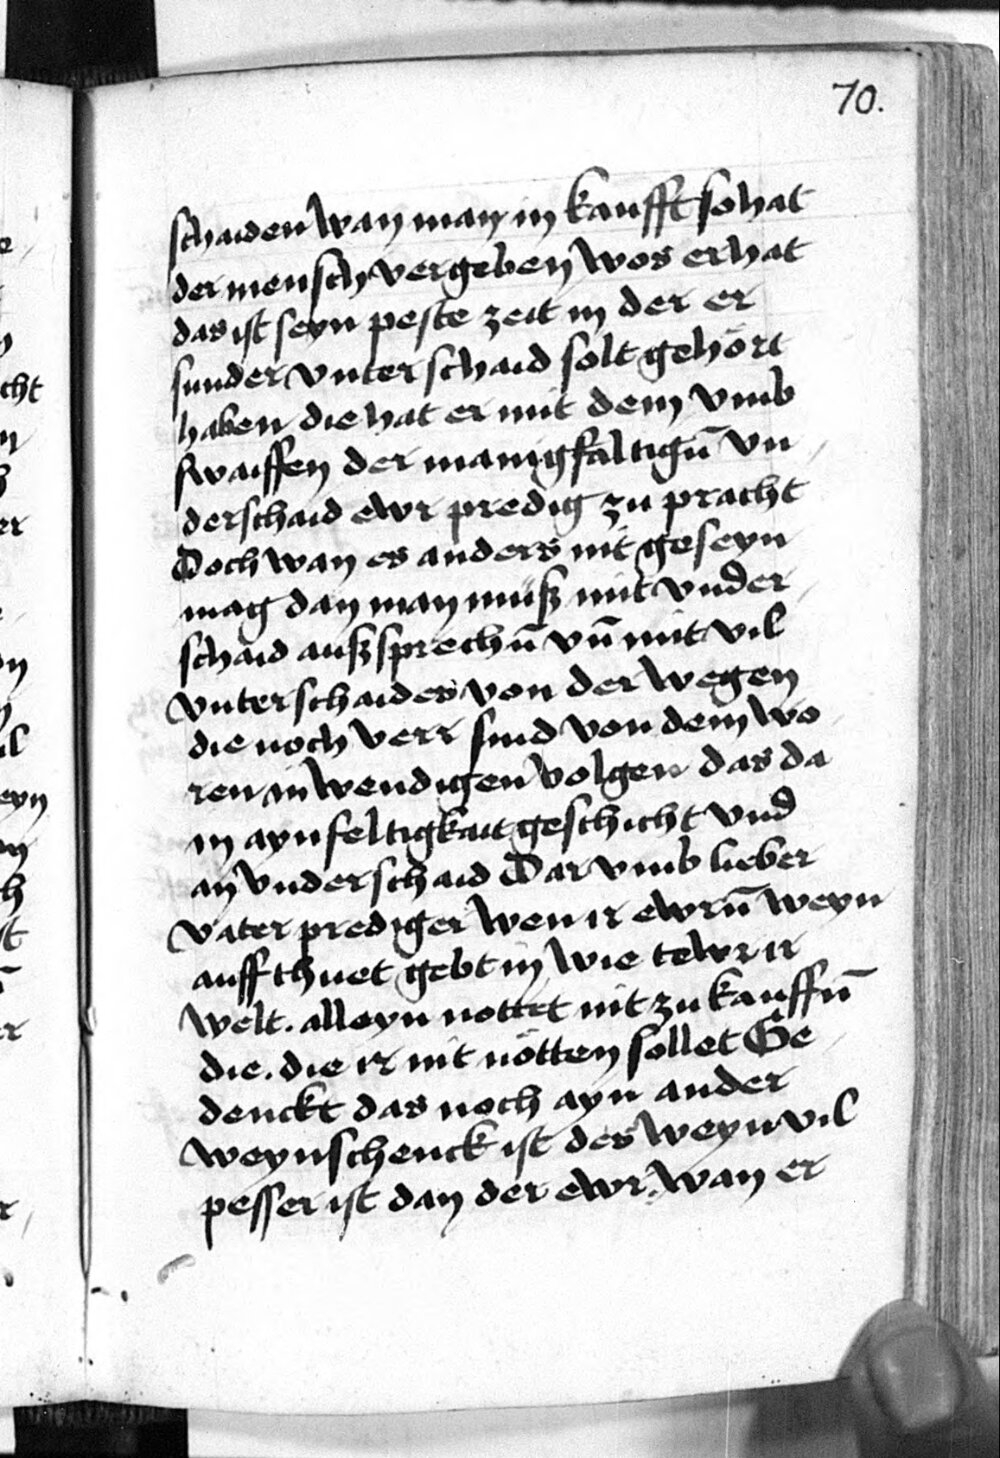 70.
schaiden wan man in kaufft so hat
der mensch vergeben wos er hat
das ist seyn peste zeit in der er
sunder vnterschaid solt gehört
haben die hat er mit dem vmb
swaiffen der manigfaltigū vn
derschaid ewr predig zu pracht
Doch wan es anders nit geseyn
mag dan man muß mit vnder
schaid außsprechū vn̄ mit vil
vnterschaides von der wegen
die noch verr sind von dem wo
ren inwendigen volgen das da
in aynfeltigkait geschicht vnd
an vnderschaid Dar vmb lieber
vater prediger wen ir ewrn̄ weyn
auff thuet gebt in wie tewr ir
welt. alleyn nöttet nit zu kauffn̄
die. die ir nit nötten sollet Ge
denckt das noch ayn ander
weynschenck ist des weyn vil
pesser ist dan der ewr. wan er